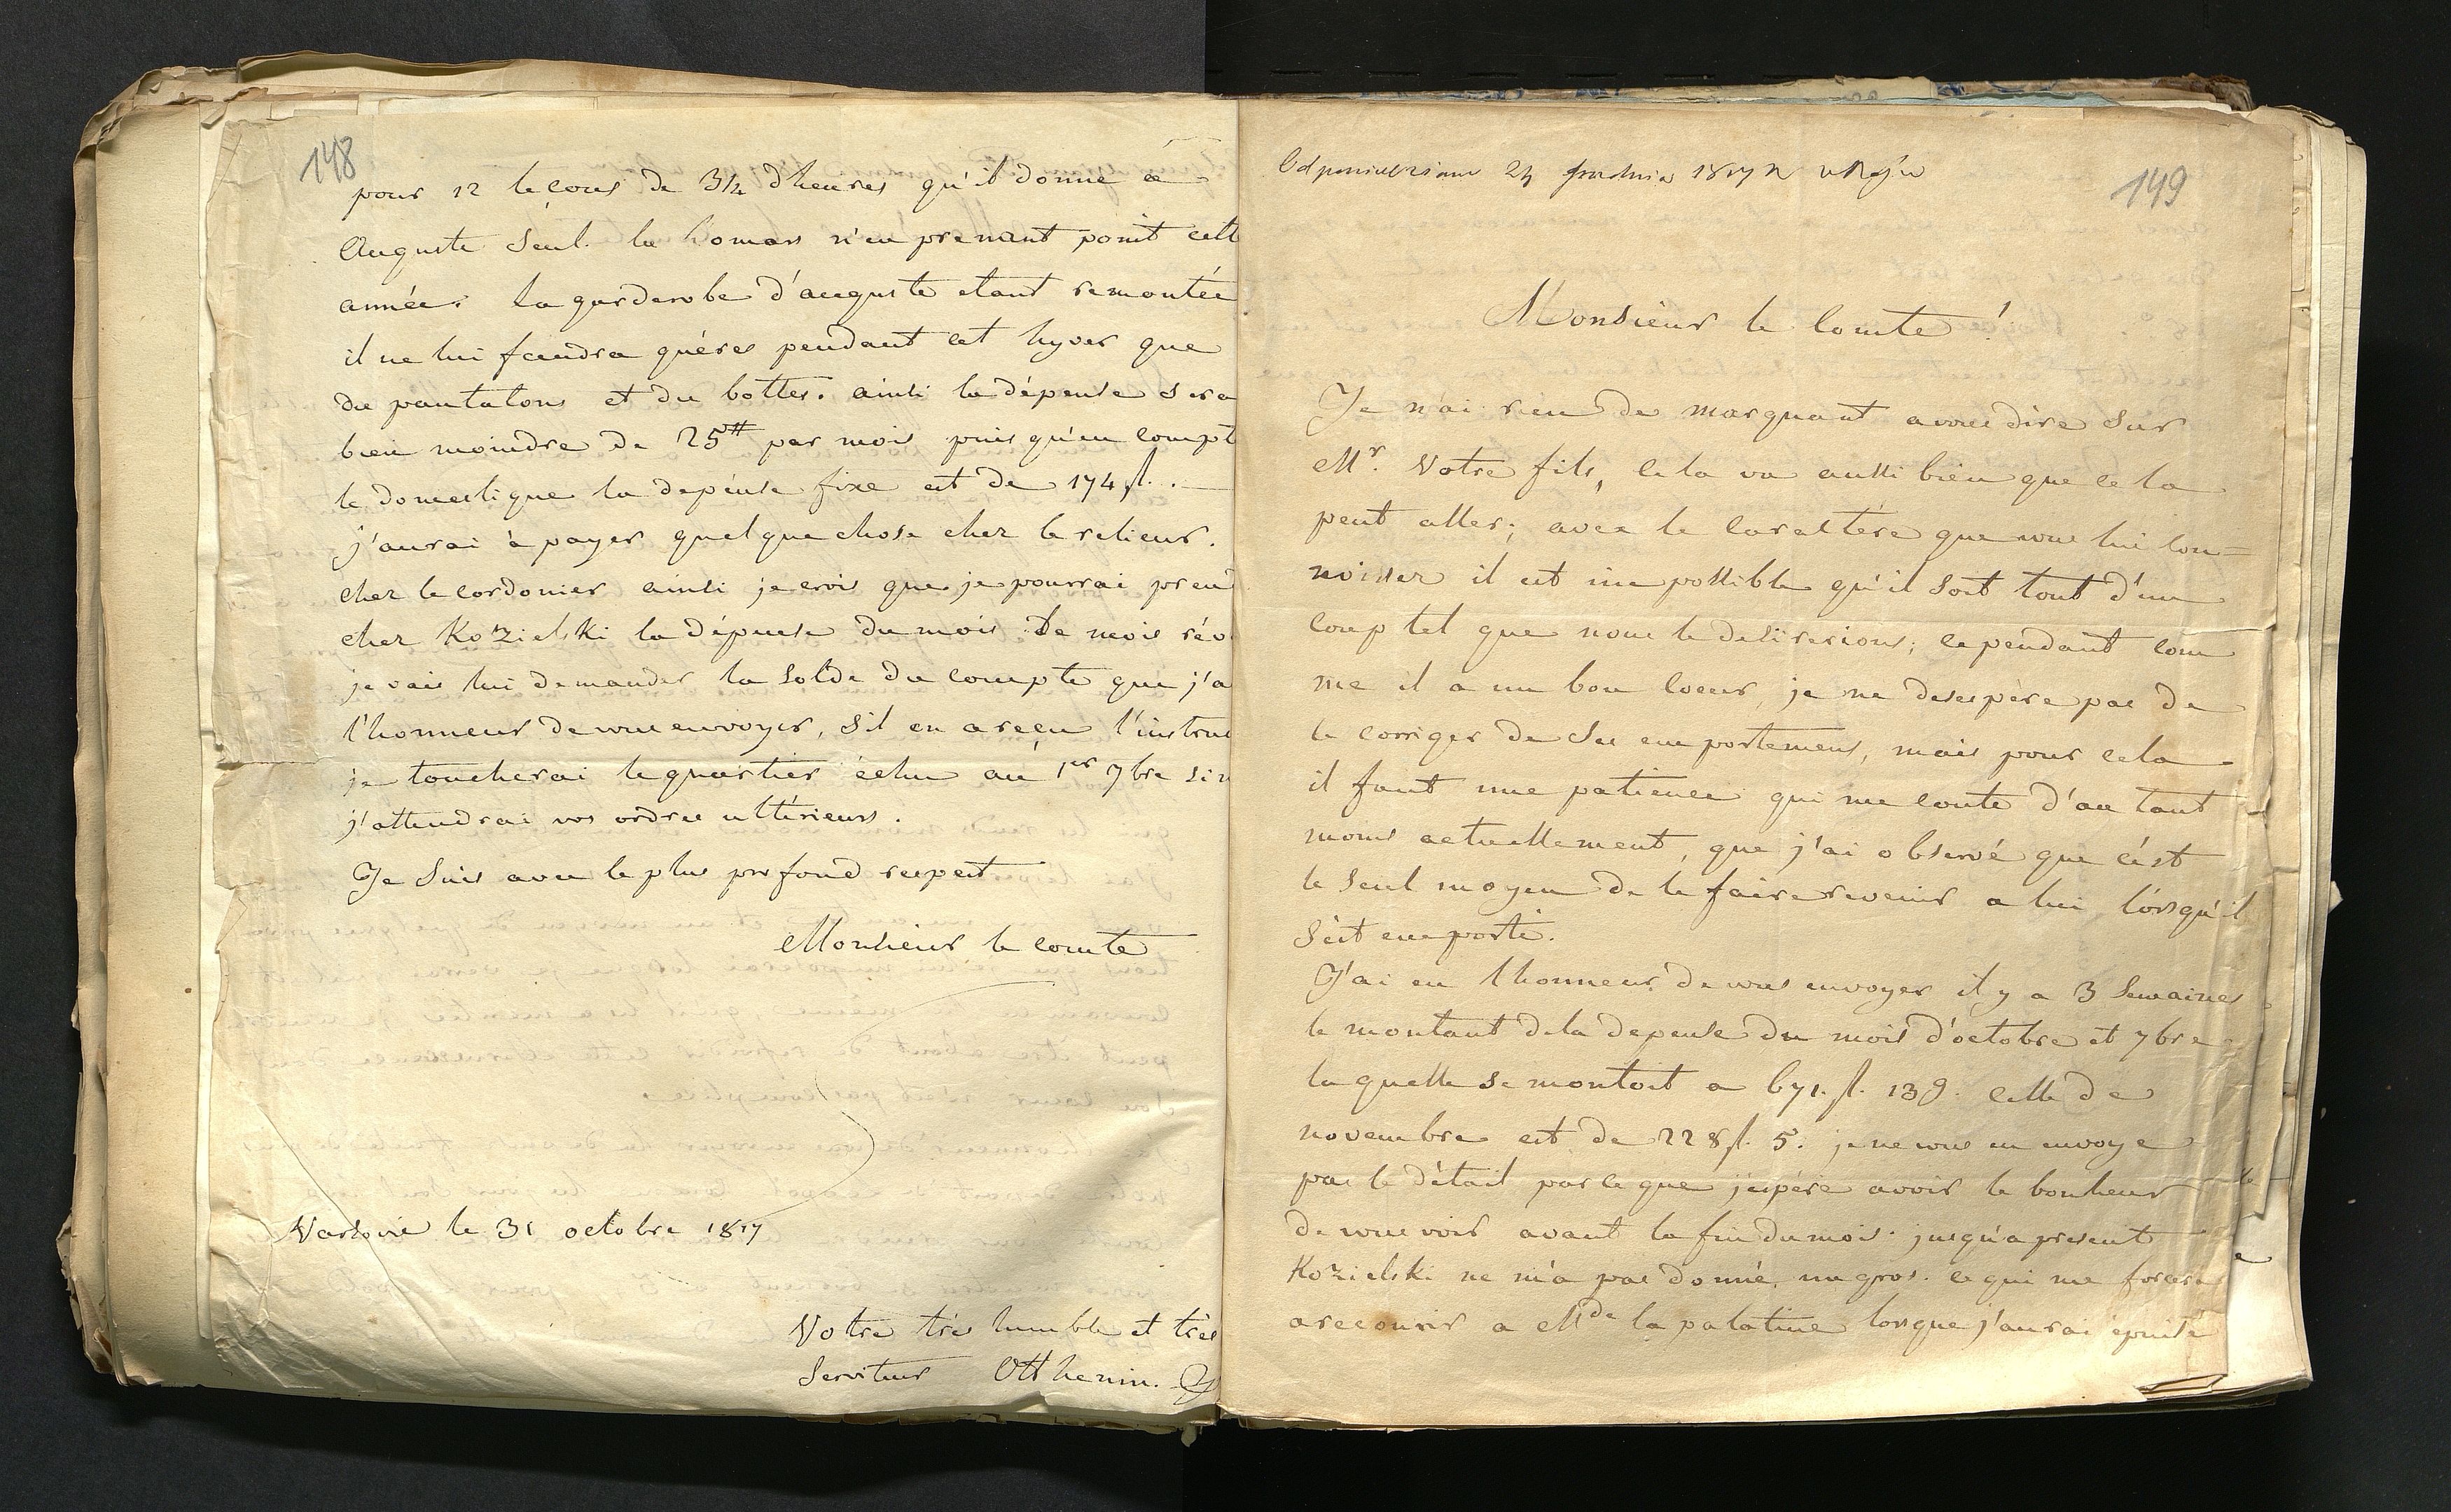 148
pour 12 leçons de 3/4 d'heures qu'il donne à
Auguste seul. le Thomas n'en prenant point cett
année. la garderobe d'auguste etant remontée
il ne lui faudra guéres pendant cet hyver que
du pantalons et du bottes. ainsi la dépense sera
bien moindre de 25# par mois puis qu'en compt
le domestique la depénse fixe est de 174 fl. .
j'aurai à payer quelque chose chez le relieur.
chez le cordonier ainsi je crois que je pourrai prend
chez Kozielski la dépense du mois De mois
je vais lui demander la solde du compte que j'a
l'honneur de vous envoyer, s'il en a reçu l'instruc
je toucherai le quartier échu au 1er 7bre sin
j'attendrai vos ordres ultérieurs.
Je suis avec le plus profond respect
Monsieur le comte
Varsovie le 31 octobre 1817
Votre très humble et très
serviteur Otthenin.
149
24 grudnia 1817
Monsieur le Comte !
Je n'ai rien de marquant a vous dire sur
Mr. Votre fils, cela va aussi bien que cela
peut aller; avec le caractère que vous lui con=
noissez il est impossible qu'il soit tout d'un
coup tel que nous le desirerions; cependant com
me il a un bon coeur, je ne desespère pas de
le corriger de ses emportemens, mais pour cela
il faut une patience qui me coute d'au tant
moins actuellement, que j'ai observé que c'est
le seul moyen de le faire revenir a lui lorsqu'il
s'est emporté.
J'ai eu l'honneur de vous envoyer il y a 3 semaines
le montant de la depense du mois d'octobre et 7bre
la quelle se montoit a 671. fl. 13 g. celle de
novembre est de 228 fl. 5. je ne vous en envoye
pas le détail parce que j'espére avoir le bonheur
de vous voir avant la fin du mois. jusqu'a present
Kozielski ne m'a pas donné un gros. ce qui me forcera
a recourir a Mde la palatine lorsque j'aurai épuisé